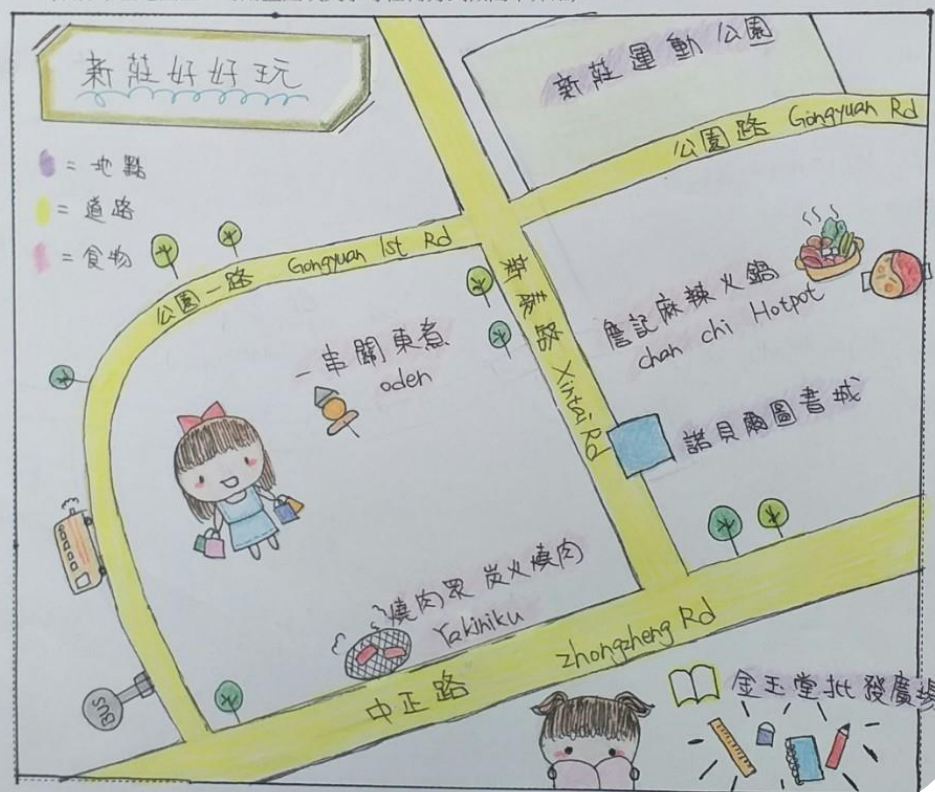 新莊好好玩
= 地點
= 道路
= 食物
新莊運動公園
公園路 Gongyuan Rd
公園一路 Gongyuan 1st Rd
新泰路 Xintai Rd
一串關東煮
oden
詹記麻辣火鍋
chan chi Hotpot
諾貝爾圖書城
燒肉眾 炭火燒肉
Yakiniku
中正路 zhongzheng Rd
BUS
金玉堂批發廣場